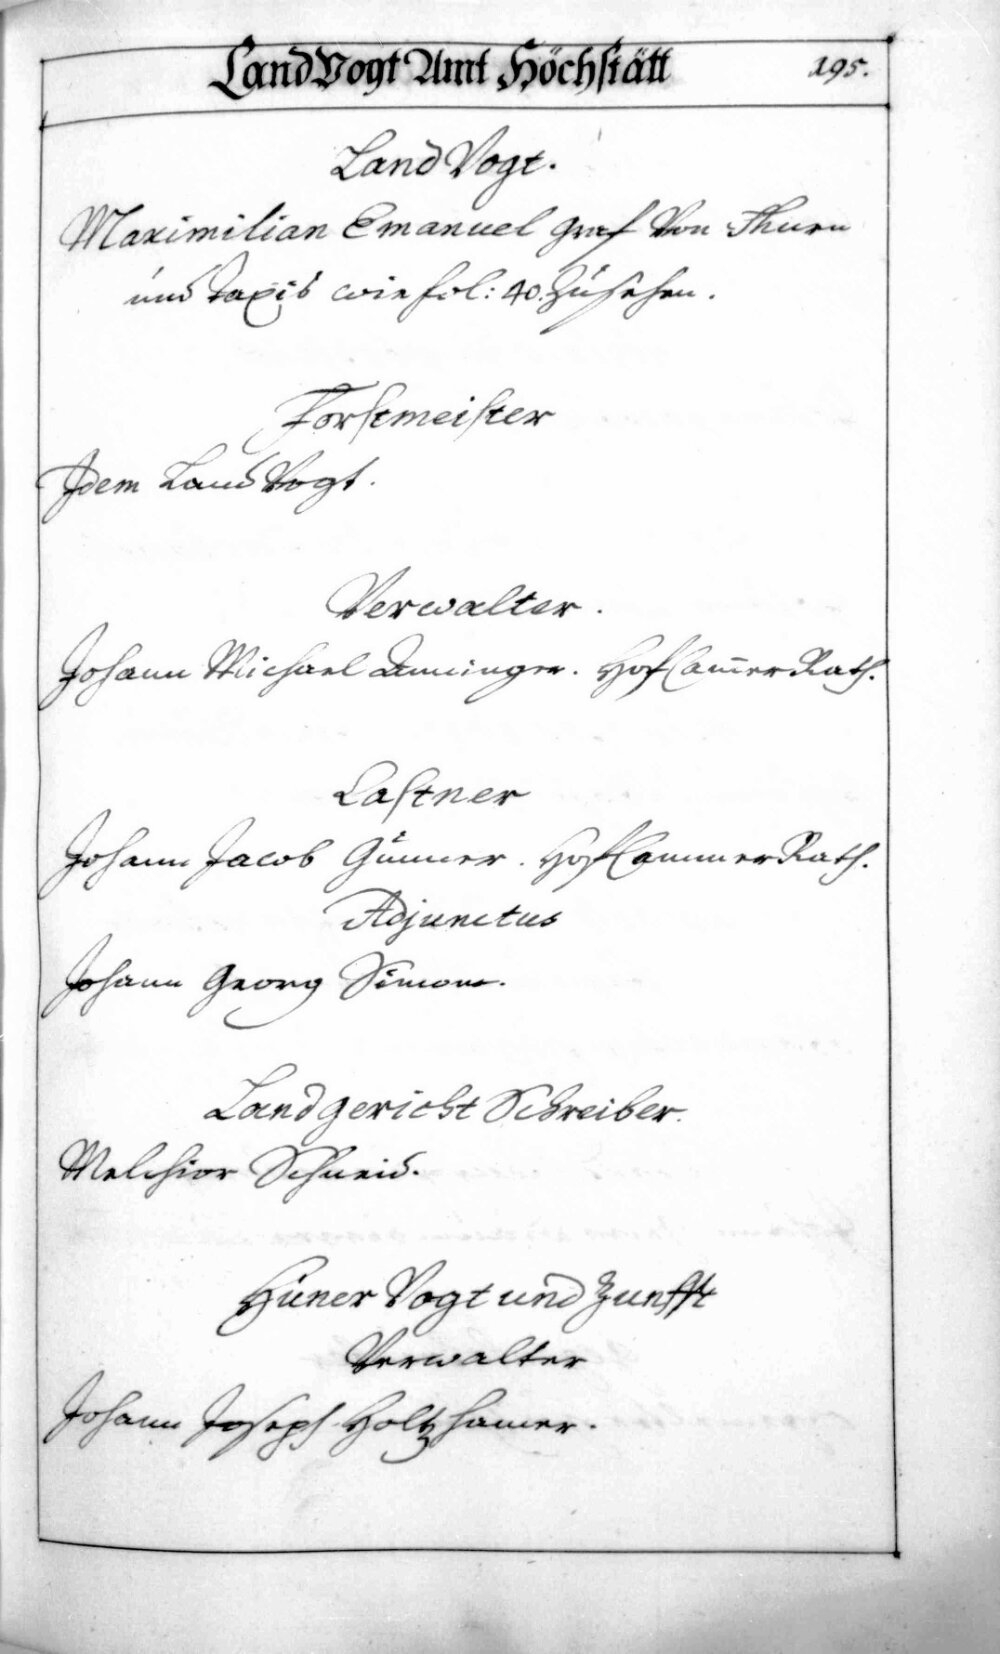 LandVogt Amt Höchstätt 195.
Land Vogt.
Maximilian Emanuel Graf Von Thurn
und Taxis wie fol: 40. zusehen.
Forstmeister
Idem Land Vogt.
Verwalter.
Johann Michael HofCam̄erRath.
Castner
Johann Jacob HofCammerRath.
Adjunctus
Johann Georg Simon.
Landgericht Schreiber.
Melchior Schneid.
Hüner Vogt und Zunfft
Verwalter
Johann Joseph Holtzhamer.